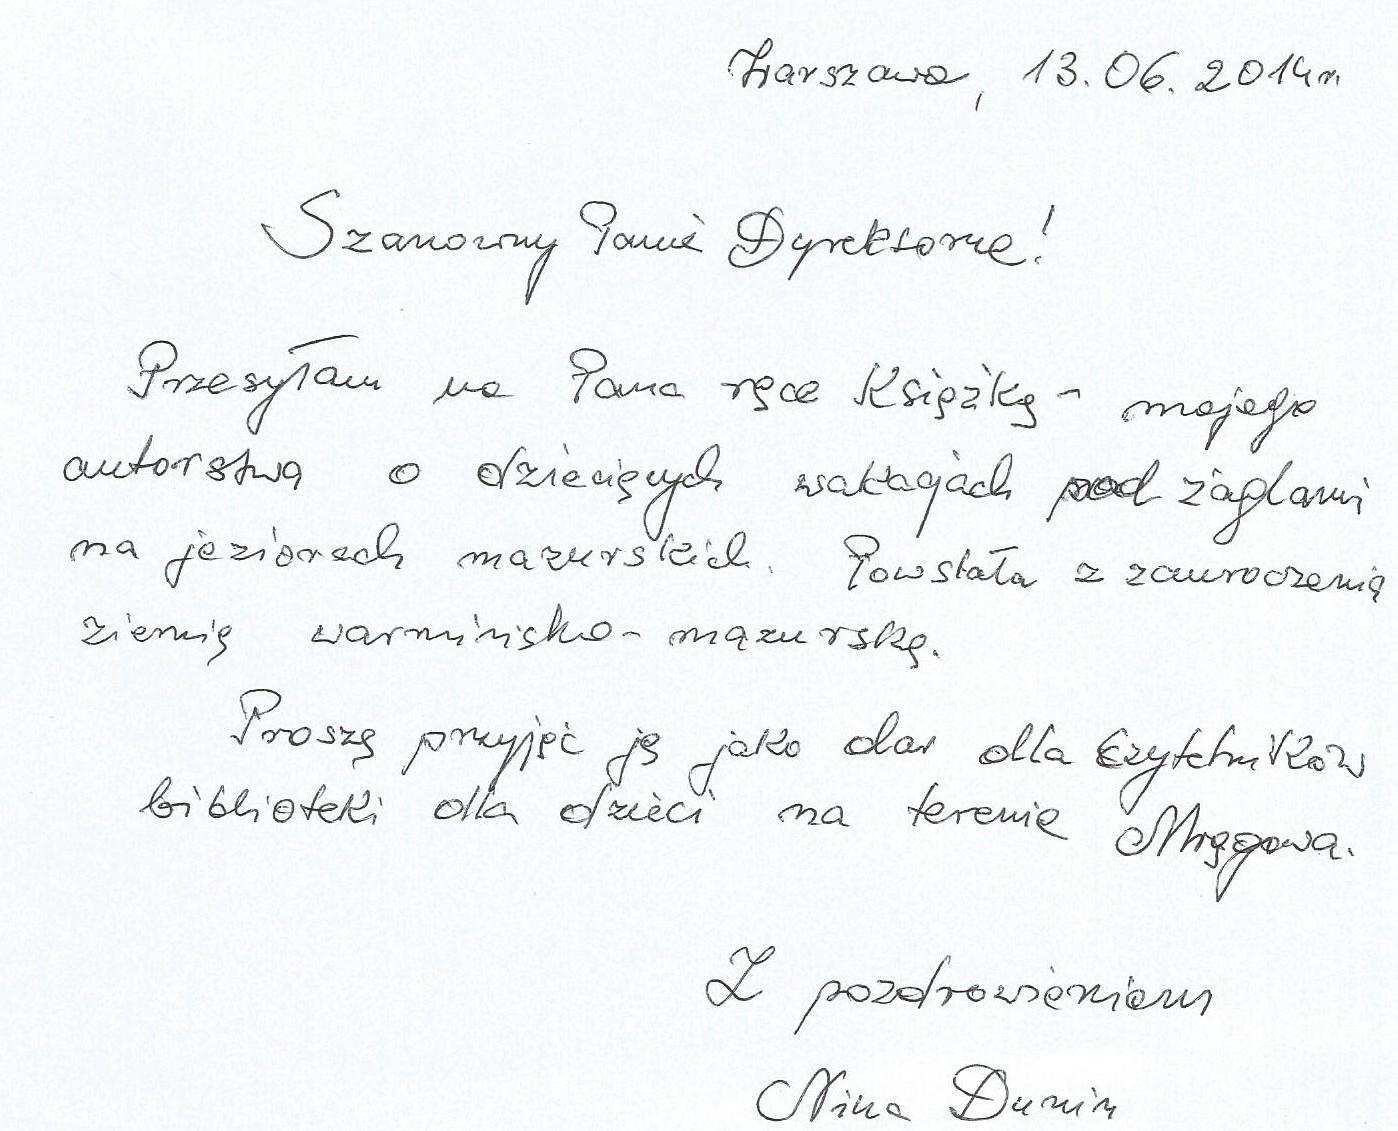 Warszawa, 13.06.2014r.
Szanowny Panie Dyrektorze!
Przesyłam na Pana ręce książkę - mojego
autorstwa o dziecięcych wakacjach pod żaglami
na jeziorach mazurskich. Powstała z zauroczenia
ziemią warmińsko-mazurską.
Proszę przyjąć ją jako dar dla Czytelników
biblioteki dla dzieci na terenie Mrągowa.
Z pozdrowieniem
Nina Dunin